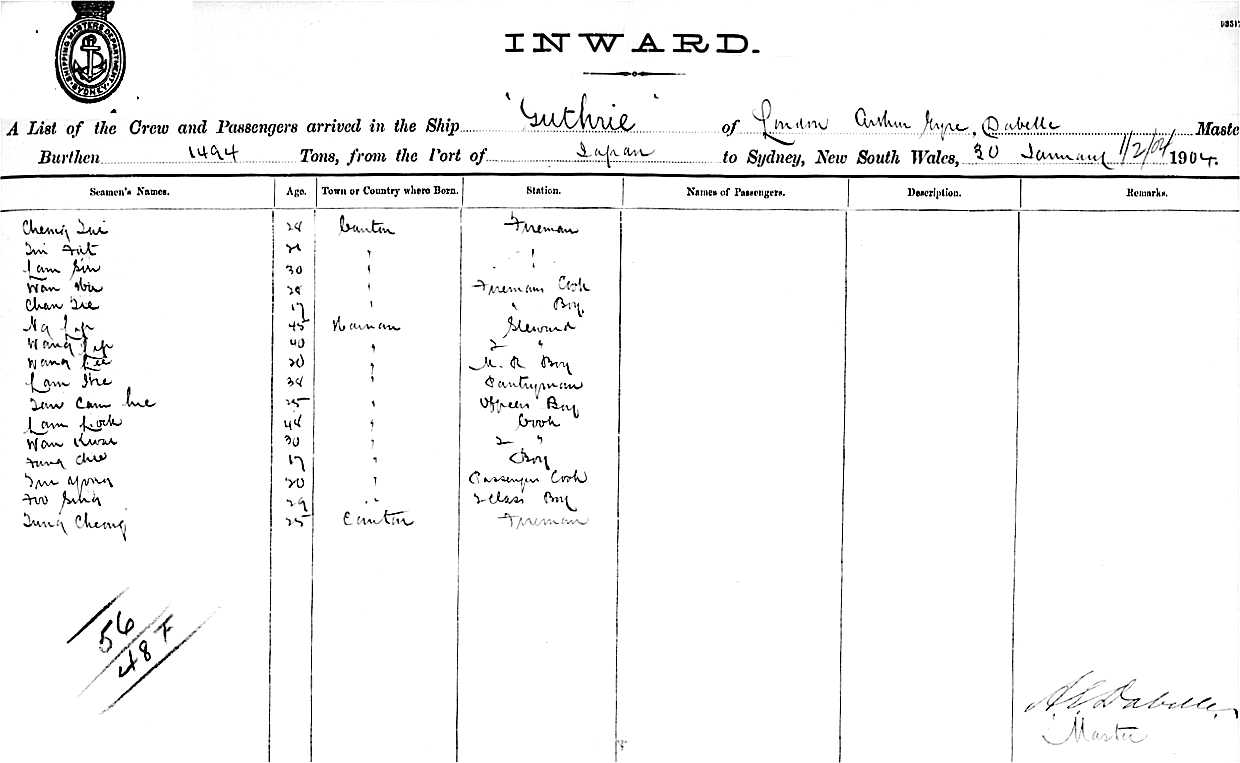 SHIPPING MASTERS DEPARTMENT. SYDNEY.
INWARD.
A List of the Crew and Passengers arrived in the Ship 'Guthrie' of London Arthur Dabelle Maste
Burthen 1494 Tons, from the Port of Japan to Sydney, New South Wales, 30 January 1/2/04 1904.
Seamen's Names. Age. Town or Country where Born. Station. Names of Passengers. Description. Remarks.
Cheng 28 Canton Fireman
Fat " "
Lam 30 " "
Wan 28 " Firemans Cook
Chan 17 " " Boy.
Ng 45 Hainan Steward
Wang 40 " 2 "
Wang Lee 20 " M. R. Boy
Lam 38 " Pantryman
Cam 25 " Officers Boy
Lam 48 " Cook
Wan 30 " 2 "
Fung 17 " Boy
20 " Passenger Cook
Foo Sing 29 " 2 Class Boy
Tung Cheong 25 Canton Fireman
56
48 F
A. E. Dabelle.
Master